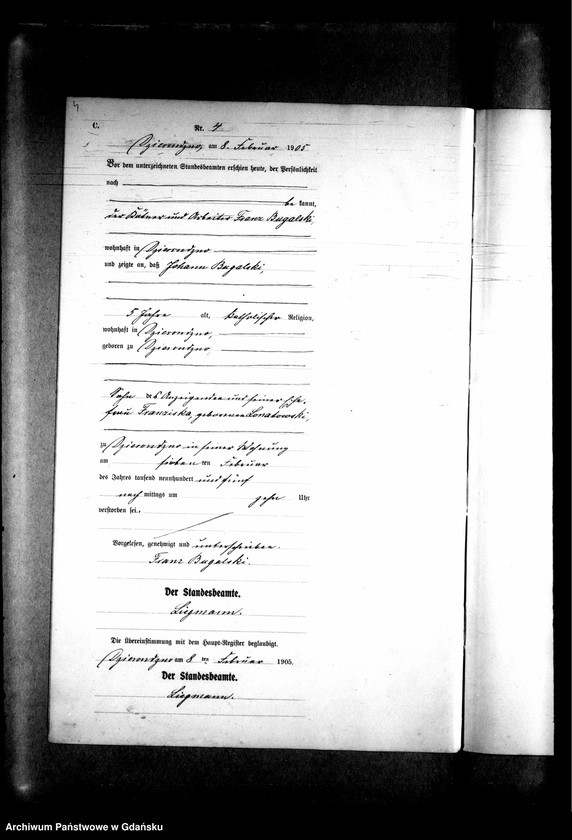 4
C.
Nr. 4
Dzierondzno, am 8. Februar 1905
Vor dem unterzeichneten Standesbeamten erschien heute, der Persönlichkeit
nach
be kannt,
der Kätner und Arbeiter Franz Bugalski,
wohnhaft in Dzierondzno
und zeigte an, daß Johann Bugalski,
5 Jahre alt, katholischer Religion,
wohnhaft in Dzierondzno,
geboren zu Dzierondzno,
Sohn des Anzeigenden und seiner Ehe-
frau Franziska, geborenen Lonatowski,
zu Dzierondzno in seiner Wohnung
am sieben ten Februar
des Jahres tausend neunhundert und fünf
nach mittags um zehn Uhr
verstorben sei.
Vorgelesen, genehmigt und unterschrieben.
Franz Bugalski.
Der Standesbeamte.
Liegmann.
Die Übereinstimmung mit dem Haupt-Register beglaubigt.
Dzierondzno am 8 ten Februar 1905.
Der Standesbeamte.
Liegmann.
Archiwum Państwowe w Gdańsku